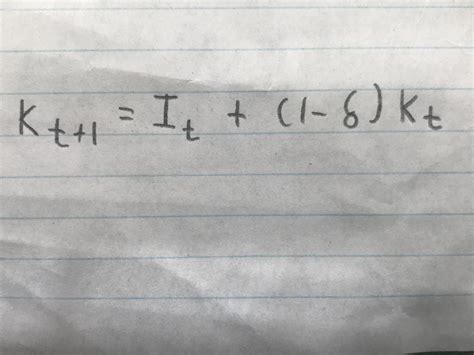 K_{t+1} = I_t + (1-δ) K_t